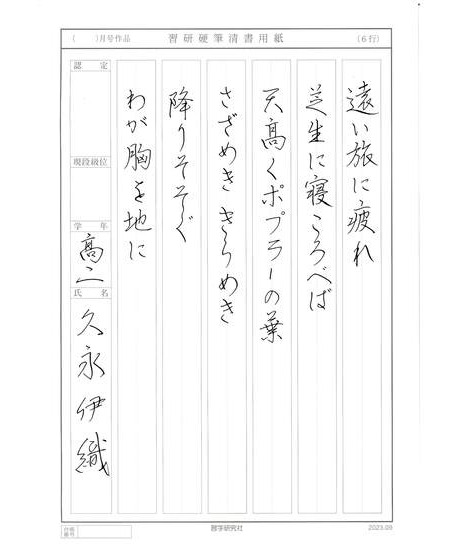 (　　)月号作品
習研硬筆清書用紙
(6行)
遠い旅に疲れ
芝生に寝ころべば
天高くポプラーの葉
さざめき きらめき
降りそそぐ
わが胸を地に
認定
現段級位
学年
高二
氏名
久永伊織
作品番号
習字研究社
2023.09